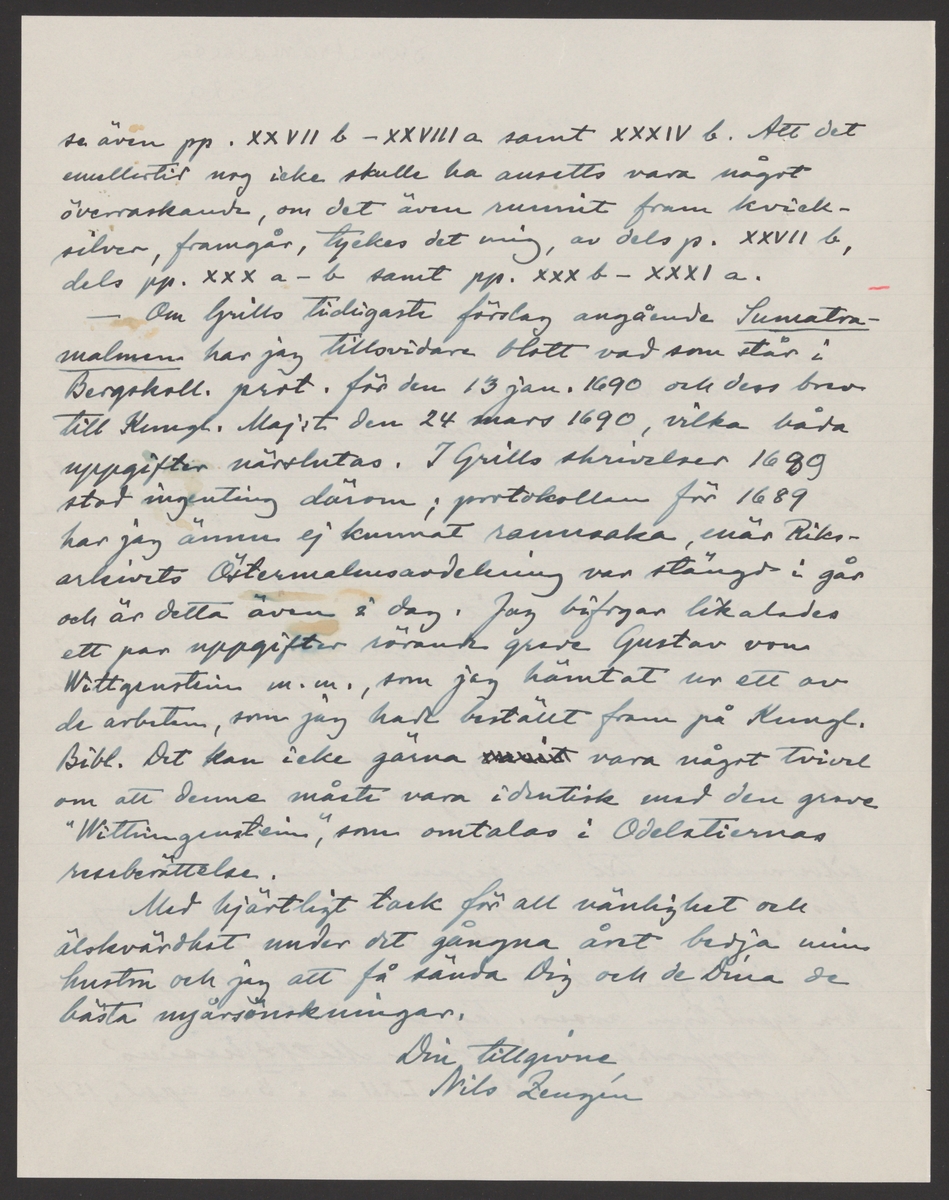 se även pp. XXVII b – XXVIII a samt XXXIV b. Att det
emellertid nog icke skulle ha ansetts vara något
överraskande, om det även runnit fram kvick-
silver, framgår, tyckes det mig, av dels p. XXVII b,
dels pp. XXX a – b samt pp. XXX b – XXXI a.
— Om Grills tidigaste förslag angående Sumatra-
malmen har jag tillsvidare blott vad som står i
Bergskoll. prot. för den 13 jan. 1690 och dess brev
till Kungl. Maj:t den 24 mars 1690, vilka båda
uppgifter närslutas. I Grills skrivelser 1689
stod ingenting därom; protokollen för 1689
har jag ännu ej kunnat rannsaka, enär Riks-
arkivets Östermalmsavdelning var stängd i går
och är detta även i dag. Jag bifogar likaledes
ett par uppgifter rörande greve Gustav von
Wittgenstein m.m., som jag hämtat ur ett av
de arbeten, som jag hade beställt fram på Kungl.
Bibl. Det kan icke gärna vara något tvivel
om att denne måste vara identisk med den greve
"Wittingenstein", som omtalas i Odelstiernas
reseberättelse.
Med hjärtligt tack för all vänlighet och
älskvärdhet under det gångna året bedja min
hustru och jag att få sända Dig och de Dina de
bästa nyårsönskningar.
Din tillgivne
Nils Zenzén